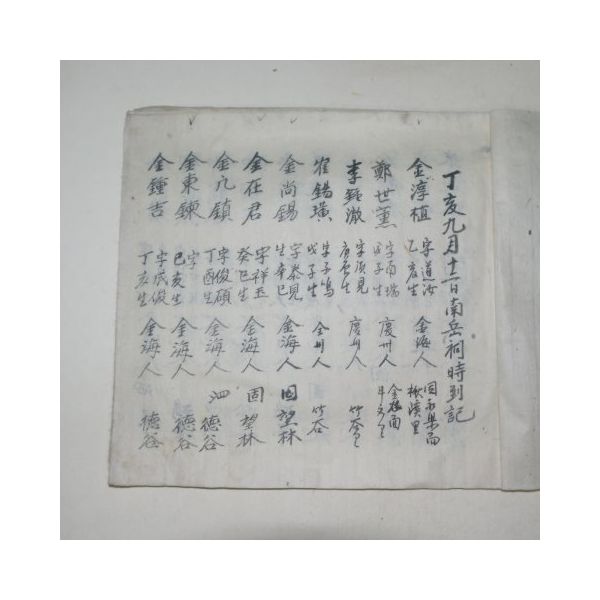 丁亥九月十二日南岳祠時到記
金淳植 字道汝 乙亥生 金海人 固永縣面
鄭世薰 字南瑞 戊子生 慶州人 金谷面
李鉦澈 字須見 庚辰生 慶州人 竹谷
崔錫璜 字子鳴 戊子生 全州人 竹谷
金尚錫 字泰見 辛巳生 金海人 固望林
金在君 字祥五 癸巳生 金海人 固望林
金九鎮 字俊碩 丁酉生 金海人 泗德谷
金東鍊 字 己亥生 金海人 德谷
金鍾吉 字成俊 丁亥生 金海人 德谷